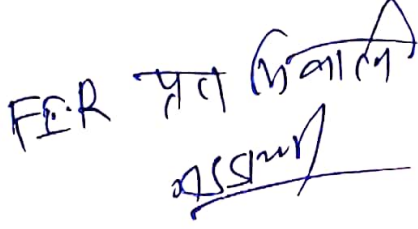 FIR प्रत मिळाली